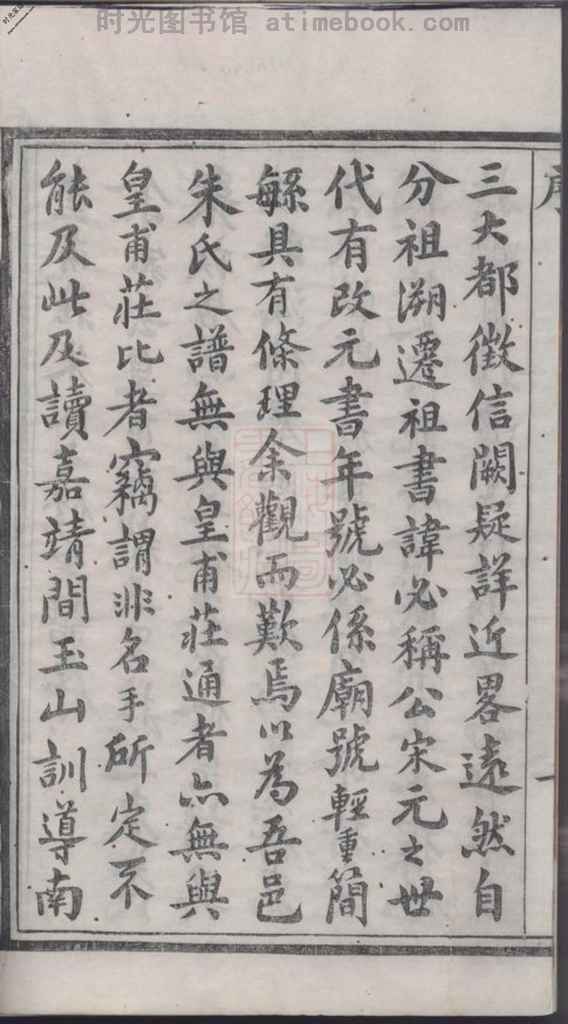 时光图书馆 atimebook.com
三大都徵信闕疑詳近畧遠然自
分祖溯遷祖書諱必稱公宋元之世
代有改元書年號必係廟號輕重簡
緐具有條理余觀而歎焉以為吾邑
朱氏之譜無與皇甫莊通者亦無與
皇甫莊比者竊謂非名手所定不
能及此及讀嘉靖間玉山訓導南